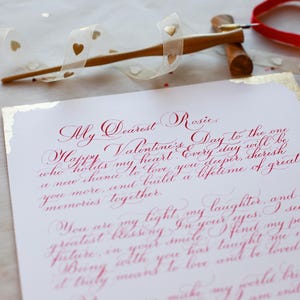 My Dearest Rosie,
Happy Valentine's Day to the one
who holds my heart. Every day will be
a new chance to love you deeper, cherish
you more, and build a lifetime of great
memories together.
You are my light, my laughter, and
greatest blessing. In your eyes, I see
future, in your smile, I find my
Being with you has taught me
it truly means to love and be loved
make my world